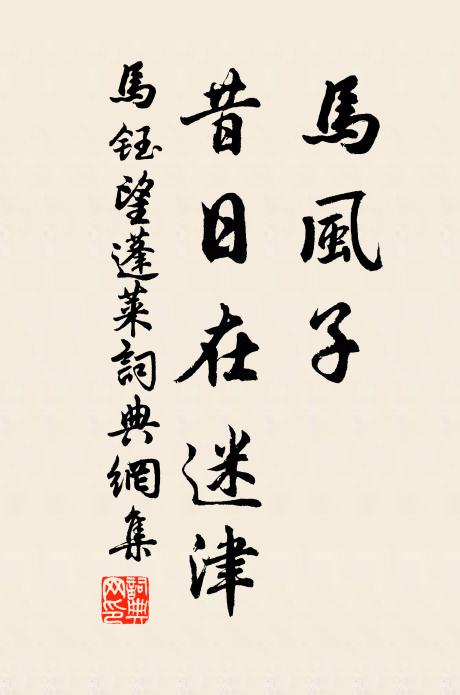 馬風子
昔日在迷津
馬鈺望蓬萊詞典網集
詞典
网印